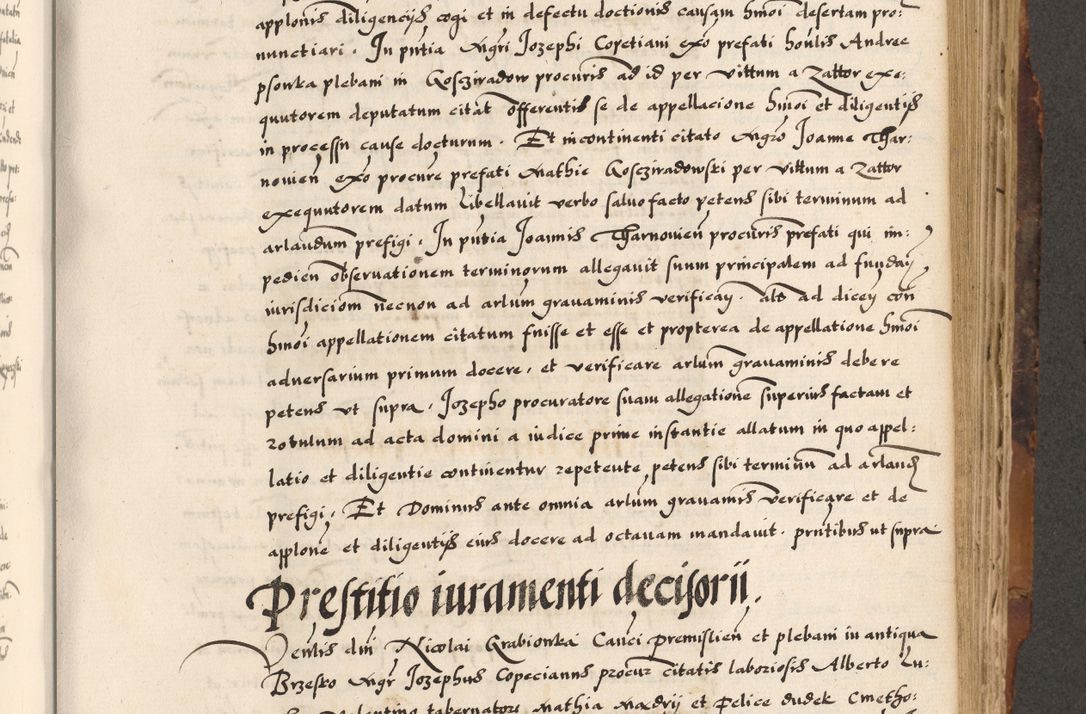 applonis diligencijs cogi et in defectu doctionis causam hmoi desertam pro:
nunctiari. In pntia Mgri Jozephi Copetiani exo prefati honlis Andree
psonka plebani in Gosciradow procuris ad id per vittum a Zattor exe:
quutorem deputatum citat offerentis se de appellacione hmoi et diligentijs
in processu cause docturum. Et incontinenti citato Mgro Joanne Thar:
novien exo procure prefati Mathie Gosciradowski per vittum a Zattor
exequutorem datum libellavit verbo salvo facto petens sibi terminum ad
arlandum prefigi. In pntia Joannis Tharnovien procuris prefati qui im:
pedien observationem terminorum allegavit suum principalem ad fundan
iurisdiciom necnon ad arlum gravaminis verifican. als ad dicen con
hmoi appellationem citatum fuisse et esse et propterea de appellatione hmoi
adversarium primum docere, et verificare arlum gravaminis debere
petens ut supra. Jozepho procuratore suam allegatione superius factam et
rotulum ad acta domini a iudice prime instantie allatum in quo appel:
latio et diligentie continentur repetente, petens sibi terminu ad arland
prefigi. Et Dominus ante omnia arlum gravamis verificare et de
applone et diligentijs eius docere ad octavam mandavit. pntibus ut supra
Prestitio iuramenti decisorii.
Venlis dni Nicolai Grabionka Canci Premislien et plebani in antiqua
Brzesko Mgr Jozephus Copecianus procur citatis laboriosis Alberto Lu:
Valentino tabernatore Mathia Madrij et Felice dudek Cmetho: